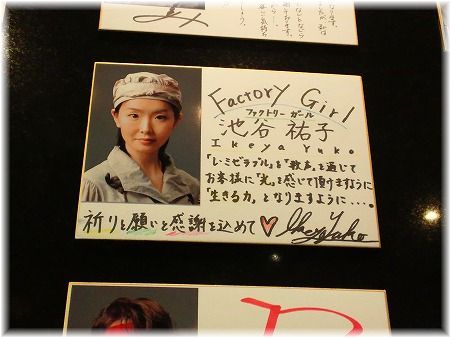 Factory Girl
ファクトリー ガール
池谷 祐子
Ikeya Yuko
「レ・ミゼラブル」を「歌声」を通じて
お客様に「光」を感じて頂けますように
「生きる力」となりますように・・・。
祈りと願いと感謝を込めて♡ Ikeya Yuko